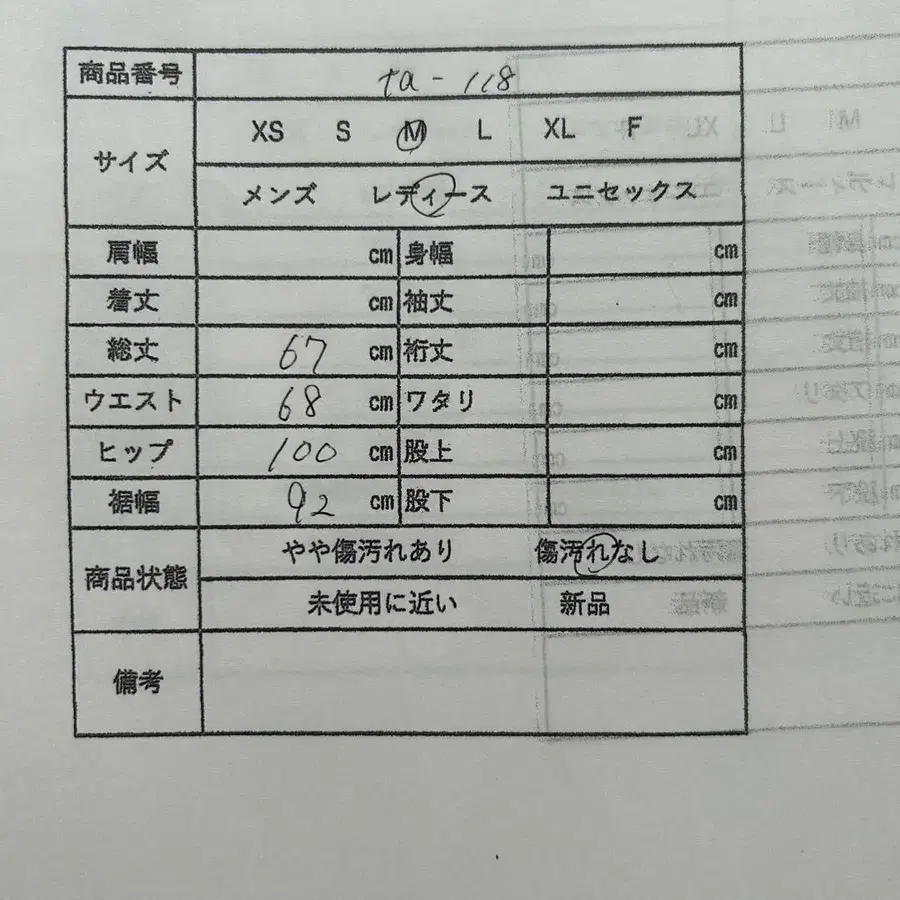 商品番号 ta - 118
サイズ XS S M L XL F
メンズ レディース ユニセックス
肩幅 cm 身幅 cm
着丈 cm 袖丈 cm
総丈 67 cm 裄丈 cm
ウエスト 68 cm ワタリ cm
ヒップ 100 cm 股上 cm
裾幅 92 cm 股下 cm
商品状態 やや傷汚れあり 傷汚れなし
未使用に近い 新品
備考